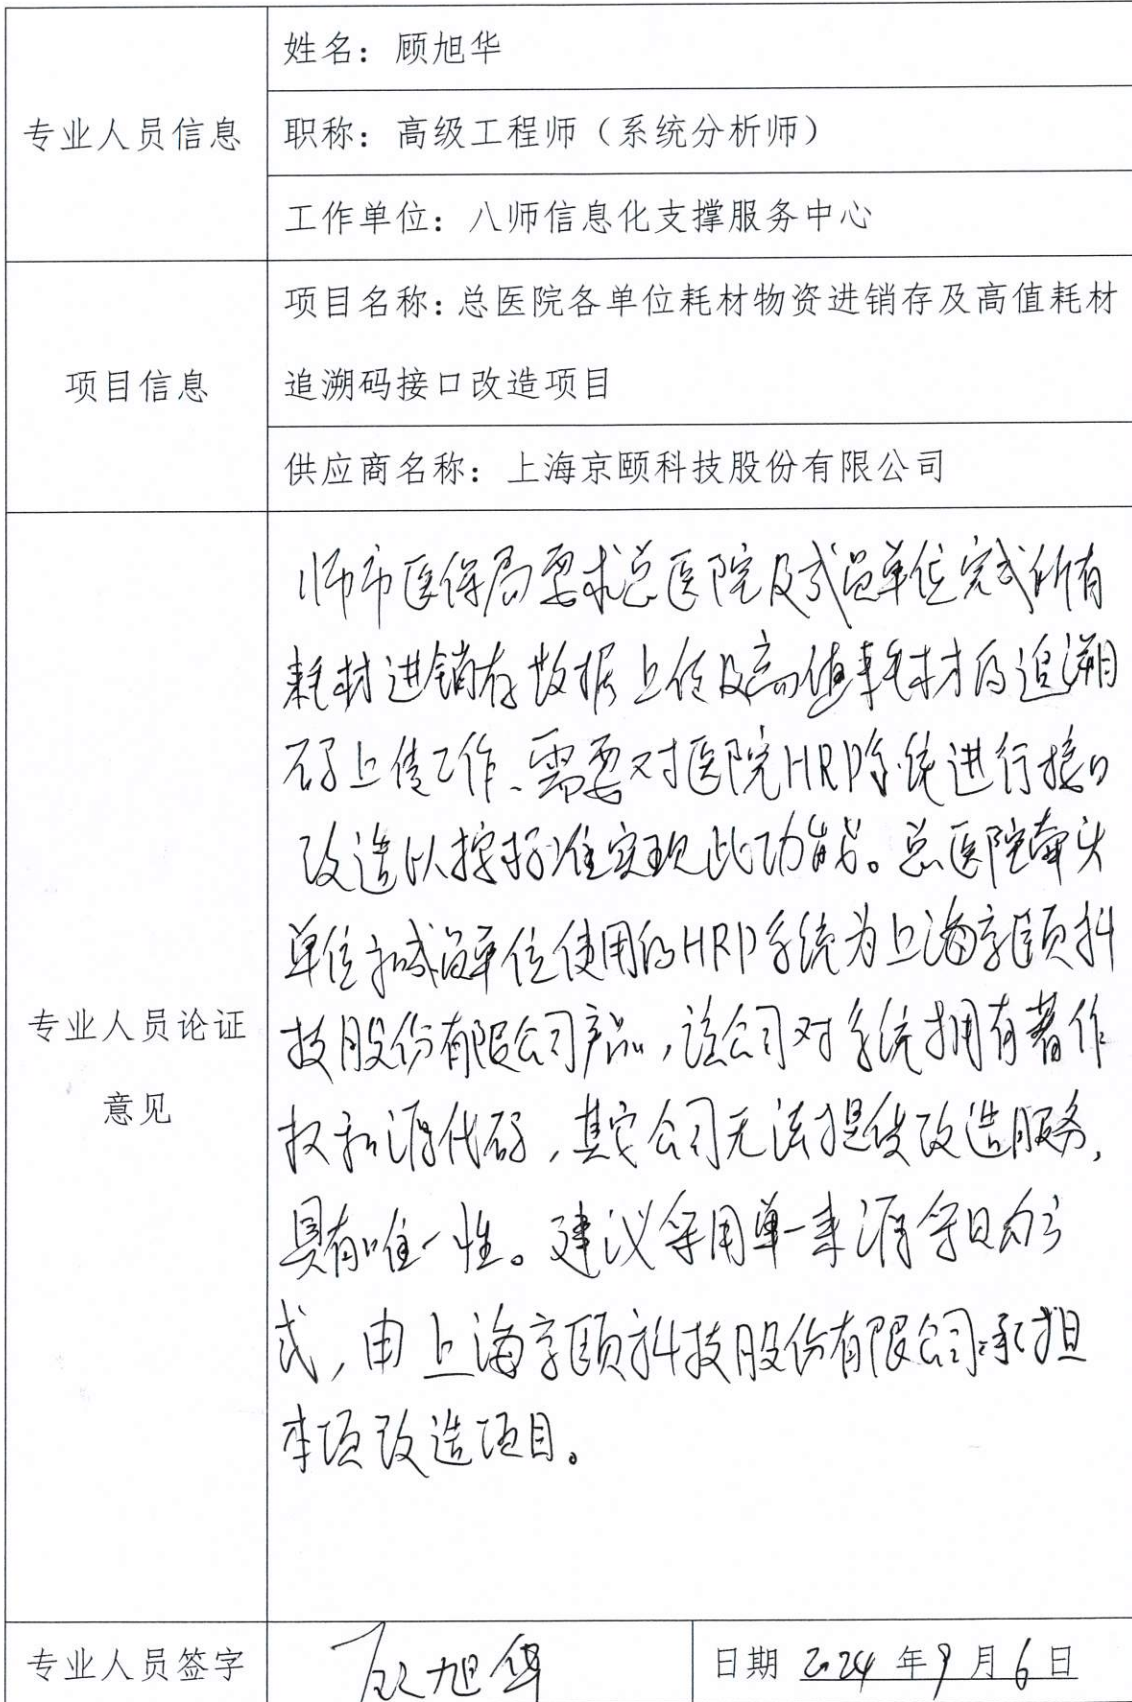 专业人员信息
姓名：顾旭华
职称：高级工程师（系统分析师）
工作单位：八师信息化支撑服务中心
项目信息
项目名称：总医院各单位耗材物资进销存及高值耗材
追溯码接口改造项目
供应商名称：上海京颐科技股份有限公司
专业人员论证
意见
师市医保局要求总医院及成员单位完成所有
耗材进销存数据上传及高值耗材的追溯
码上传工作、需要对医院HRP系统进行接口
改造以按标准实现此功能。总医院牵头
单位和成员单位使用的HRP系统为上海京颐科
技股份有限公司产品，该公司对系统拥有著作
权和源代码，其它公司无法提供改造服务，
具有唯一性。建议采用单一来源采购方
式，由上海京颐科技股份有限公司承担
本项改造项目。
专业人员签字
顾旭华
日期 2024 年 9 月 6 日